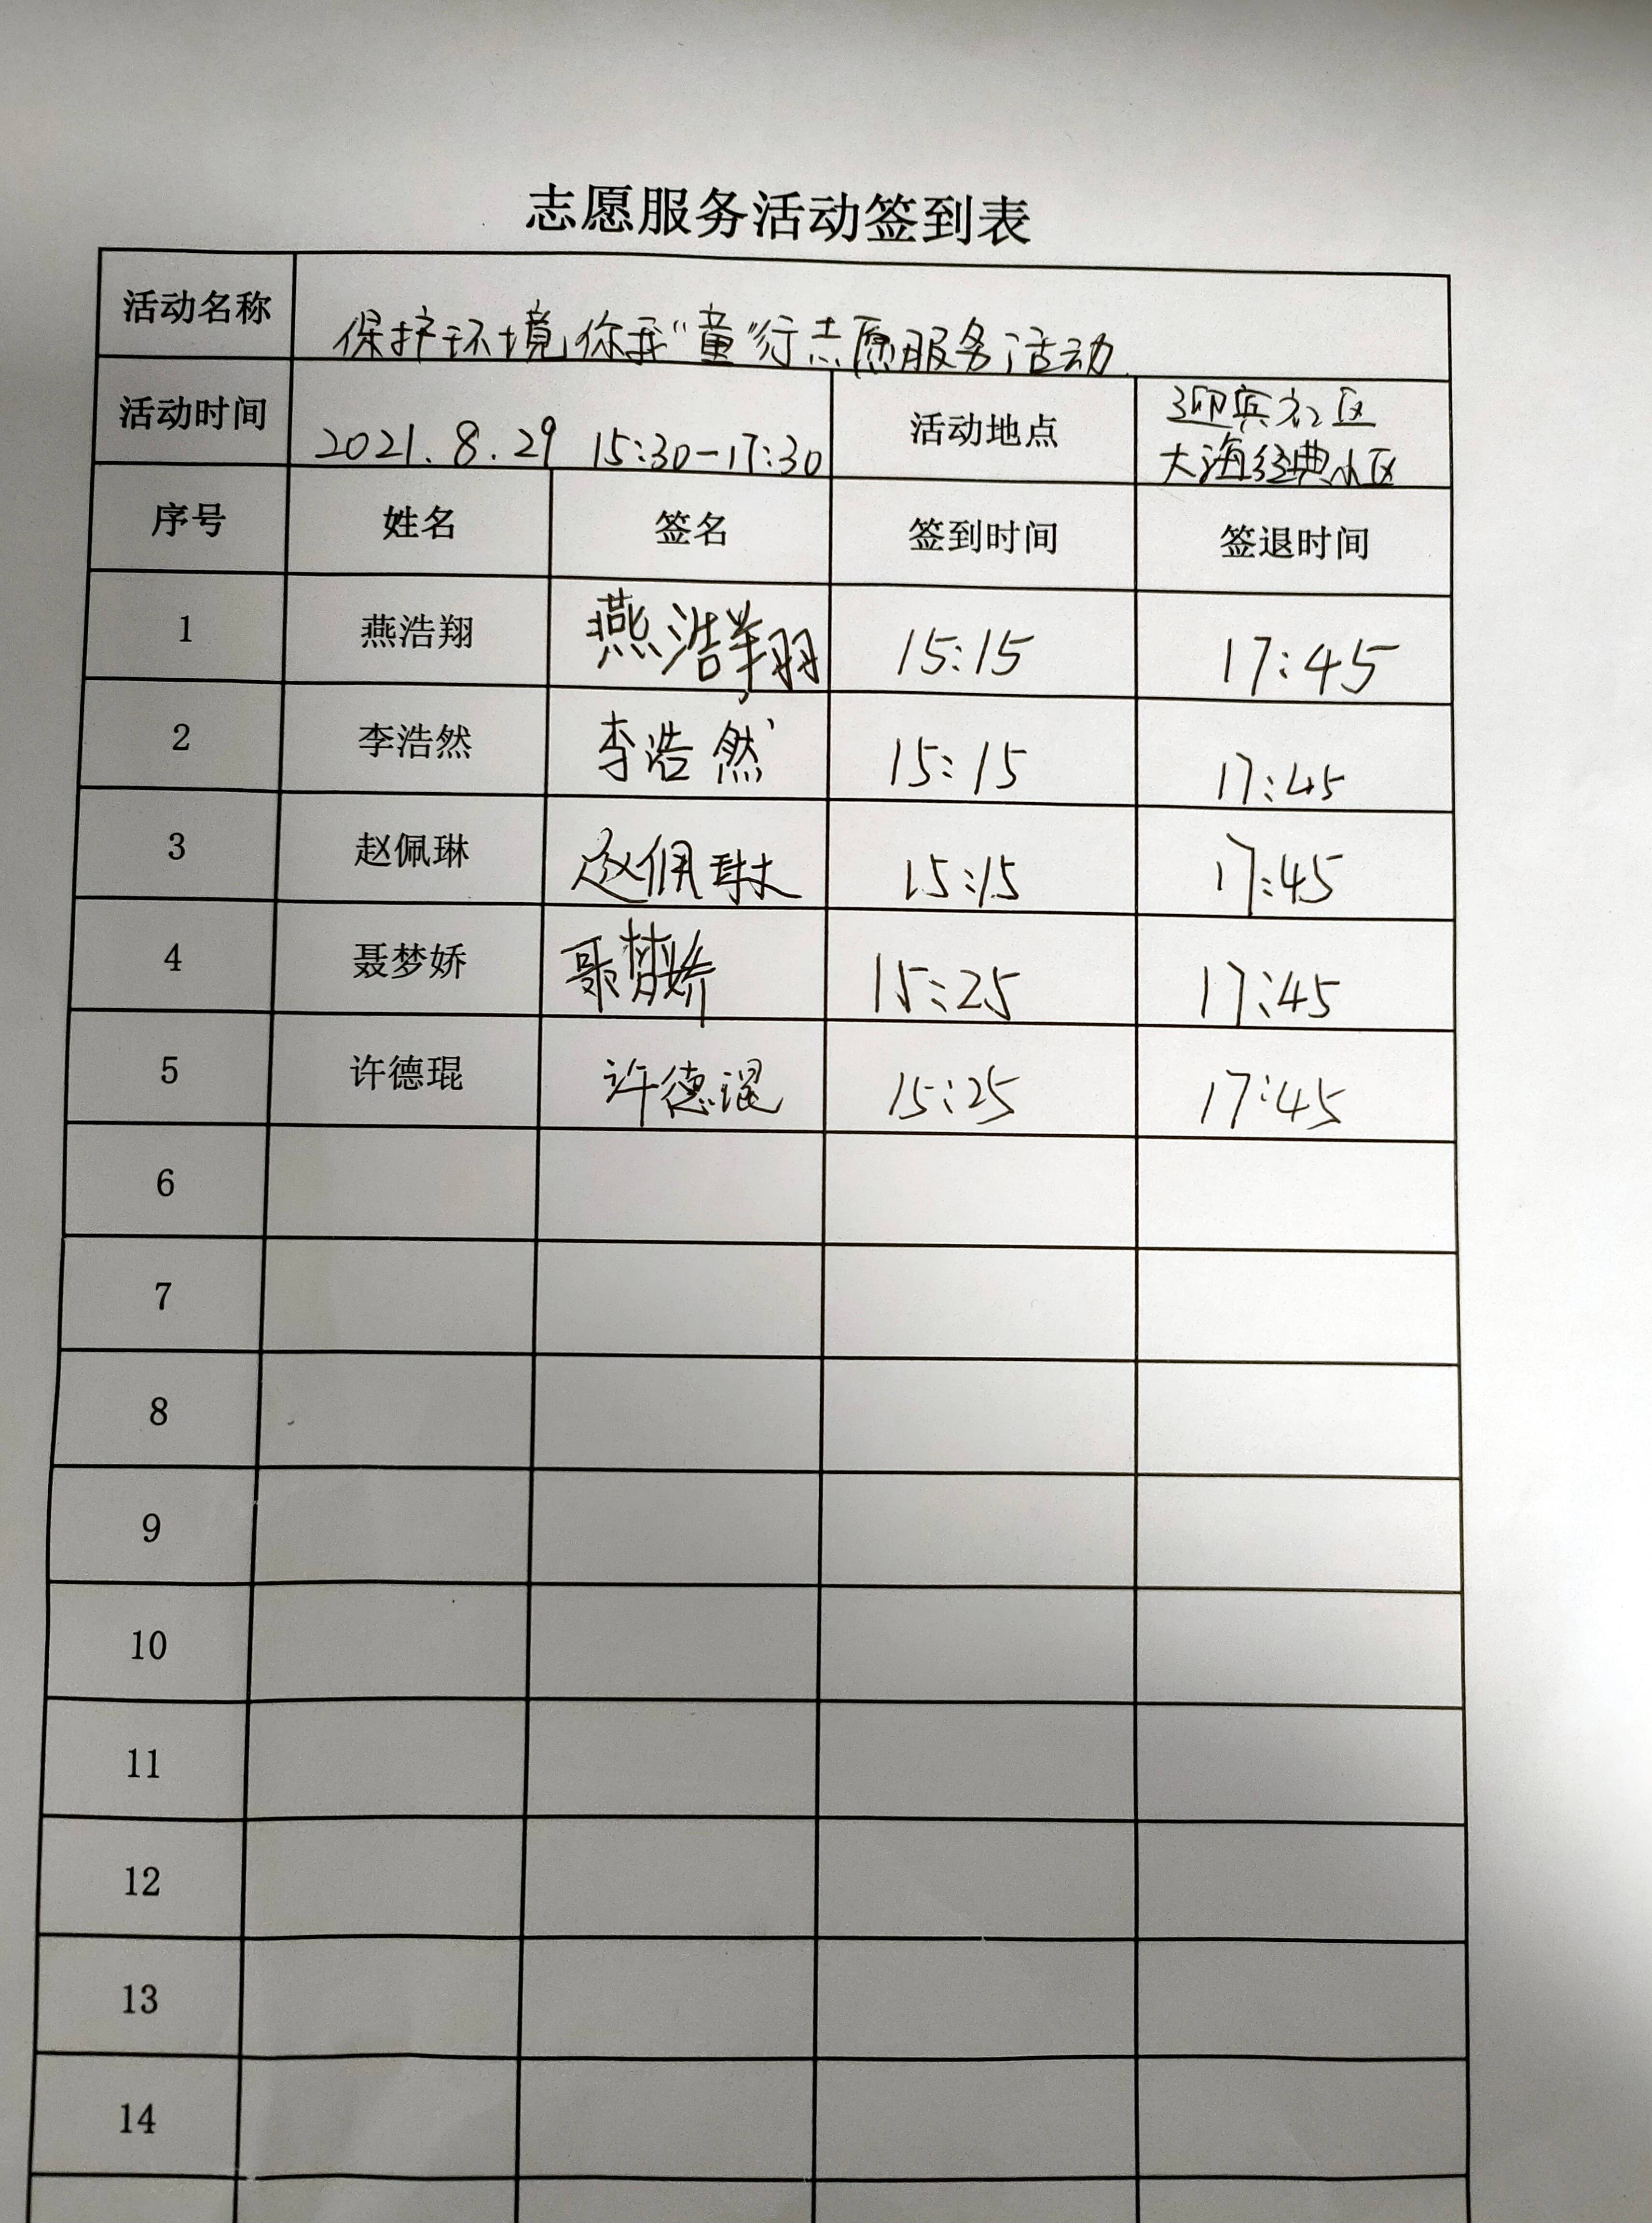 志愿服务活动签到表
活动名称 保护环境 你我“童”行志愿服务活动
活动时间 2021.8.29 15:30-17:30 活动地点 迎宾社区
大海经典小区
序号 姓名 签名 签到时间 签退时间
1 燕浩翔 燕浩翔 15:15 17:45
2 李浩然 李浩然 15:15 17:45
3 赵佩琳 赵佩琳 15:15 17:45
4 聂梦娇 聂梦娇 15:25 17:45
5 许德琨 许德琨 15:25 17:45
6
7
8
9
10
11
12
13
14